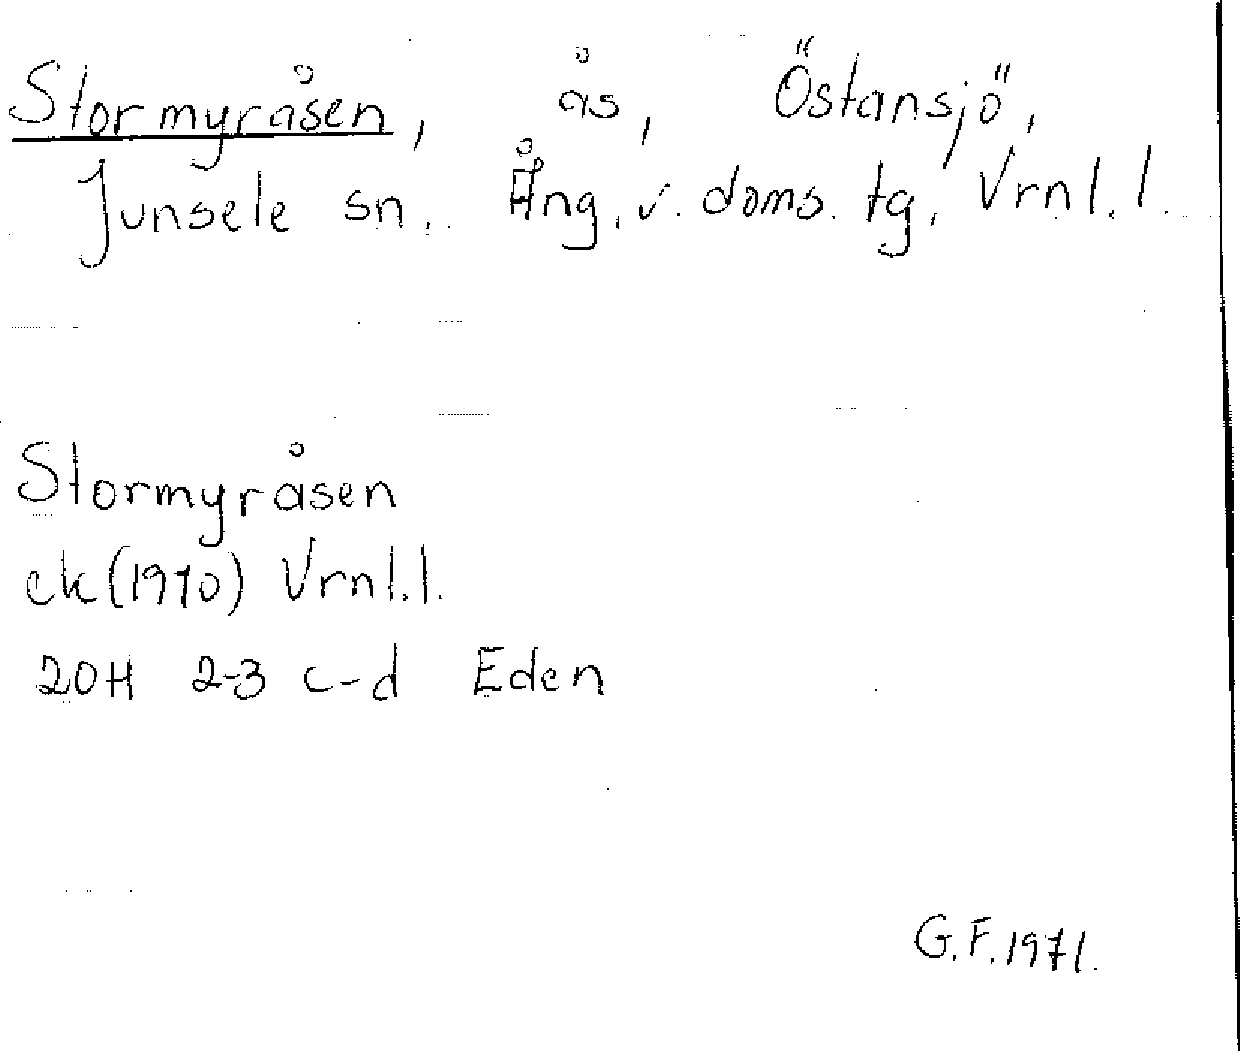 Stormyråsen, ås, Östansjö,
Junsele sn. Ång. v. doms. tg. Vrnl. l.
Stormyråsen
ek (1970) Vrnl. l.
20H 2-3 c-d Eden
G. F. 1971.